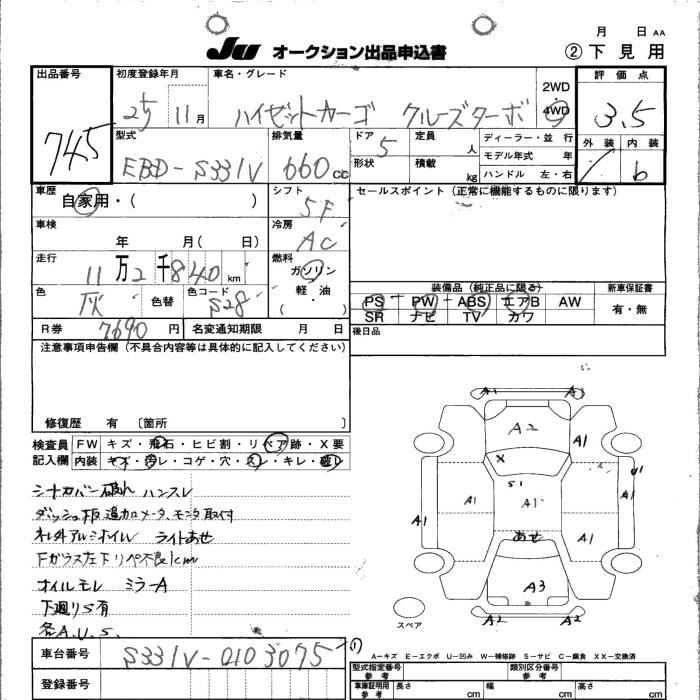 月 日 AA
JU オークション出品申込書 ②下見用
出品番号 初度登録年月 車名・グレード 2WD 4WD 評価点
745 25 11月 ハイゼットカーゴ クルーズターボ 3.5
型式 排気量 ドア 定員 人 ディーラー・並行 外装 内装
EBD-S331V 660cc 5 モデル年式 年 6
形状 積載 kg ハンドル 左・右
車歴 シフト セールスポイント(正常に機能するものに限ります)
自家用・( ) 5F
車検 冷房
年 月( 日) AC
走行 燃料
11万2千840km ガソリン
色 色替 色コード 軽・油 装備品(純正品に限る) 新車保証書
灰 S28 ( PS PW ABS エアB AW 有・無
SR ナビ TV カワ
R券 7690円 名変通知期限 月 日 後日品
注意事項申告欄(不具合内容等は具体的に記入してください)
修復歴 有 〔箇所 〕
検査員 FW キズ・飛石・ヒビ割・リペア跡・X要
記入欄 内装 キズ・汚レ・コゲ・穴・スレ・キレ・破レ
シートカバー破れ ハンスレ
ダッシュ板追加メータ、モニタ取付
社外アルミホイル ライトあせ
Fガラス左下リペ不良1cm
オイルモレ ミラーA
下廻りS有
各A.U.S.
A1 A1
A2
A1 A1
X
S1
A1 A1 A1 A1 A1 U1
あせ
A3
A2 A2
スペア
A-キズ E-エクボ U-凹み W-補修跡 S-サビ C-腐食 XX-交換済
車台番号 S331V-0103075
登録番号
型式指定番号 参考 類別区分番号 参考
車庫証明用 参考 長さ cm cm cm